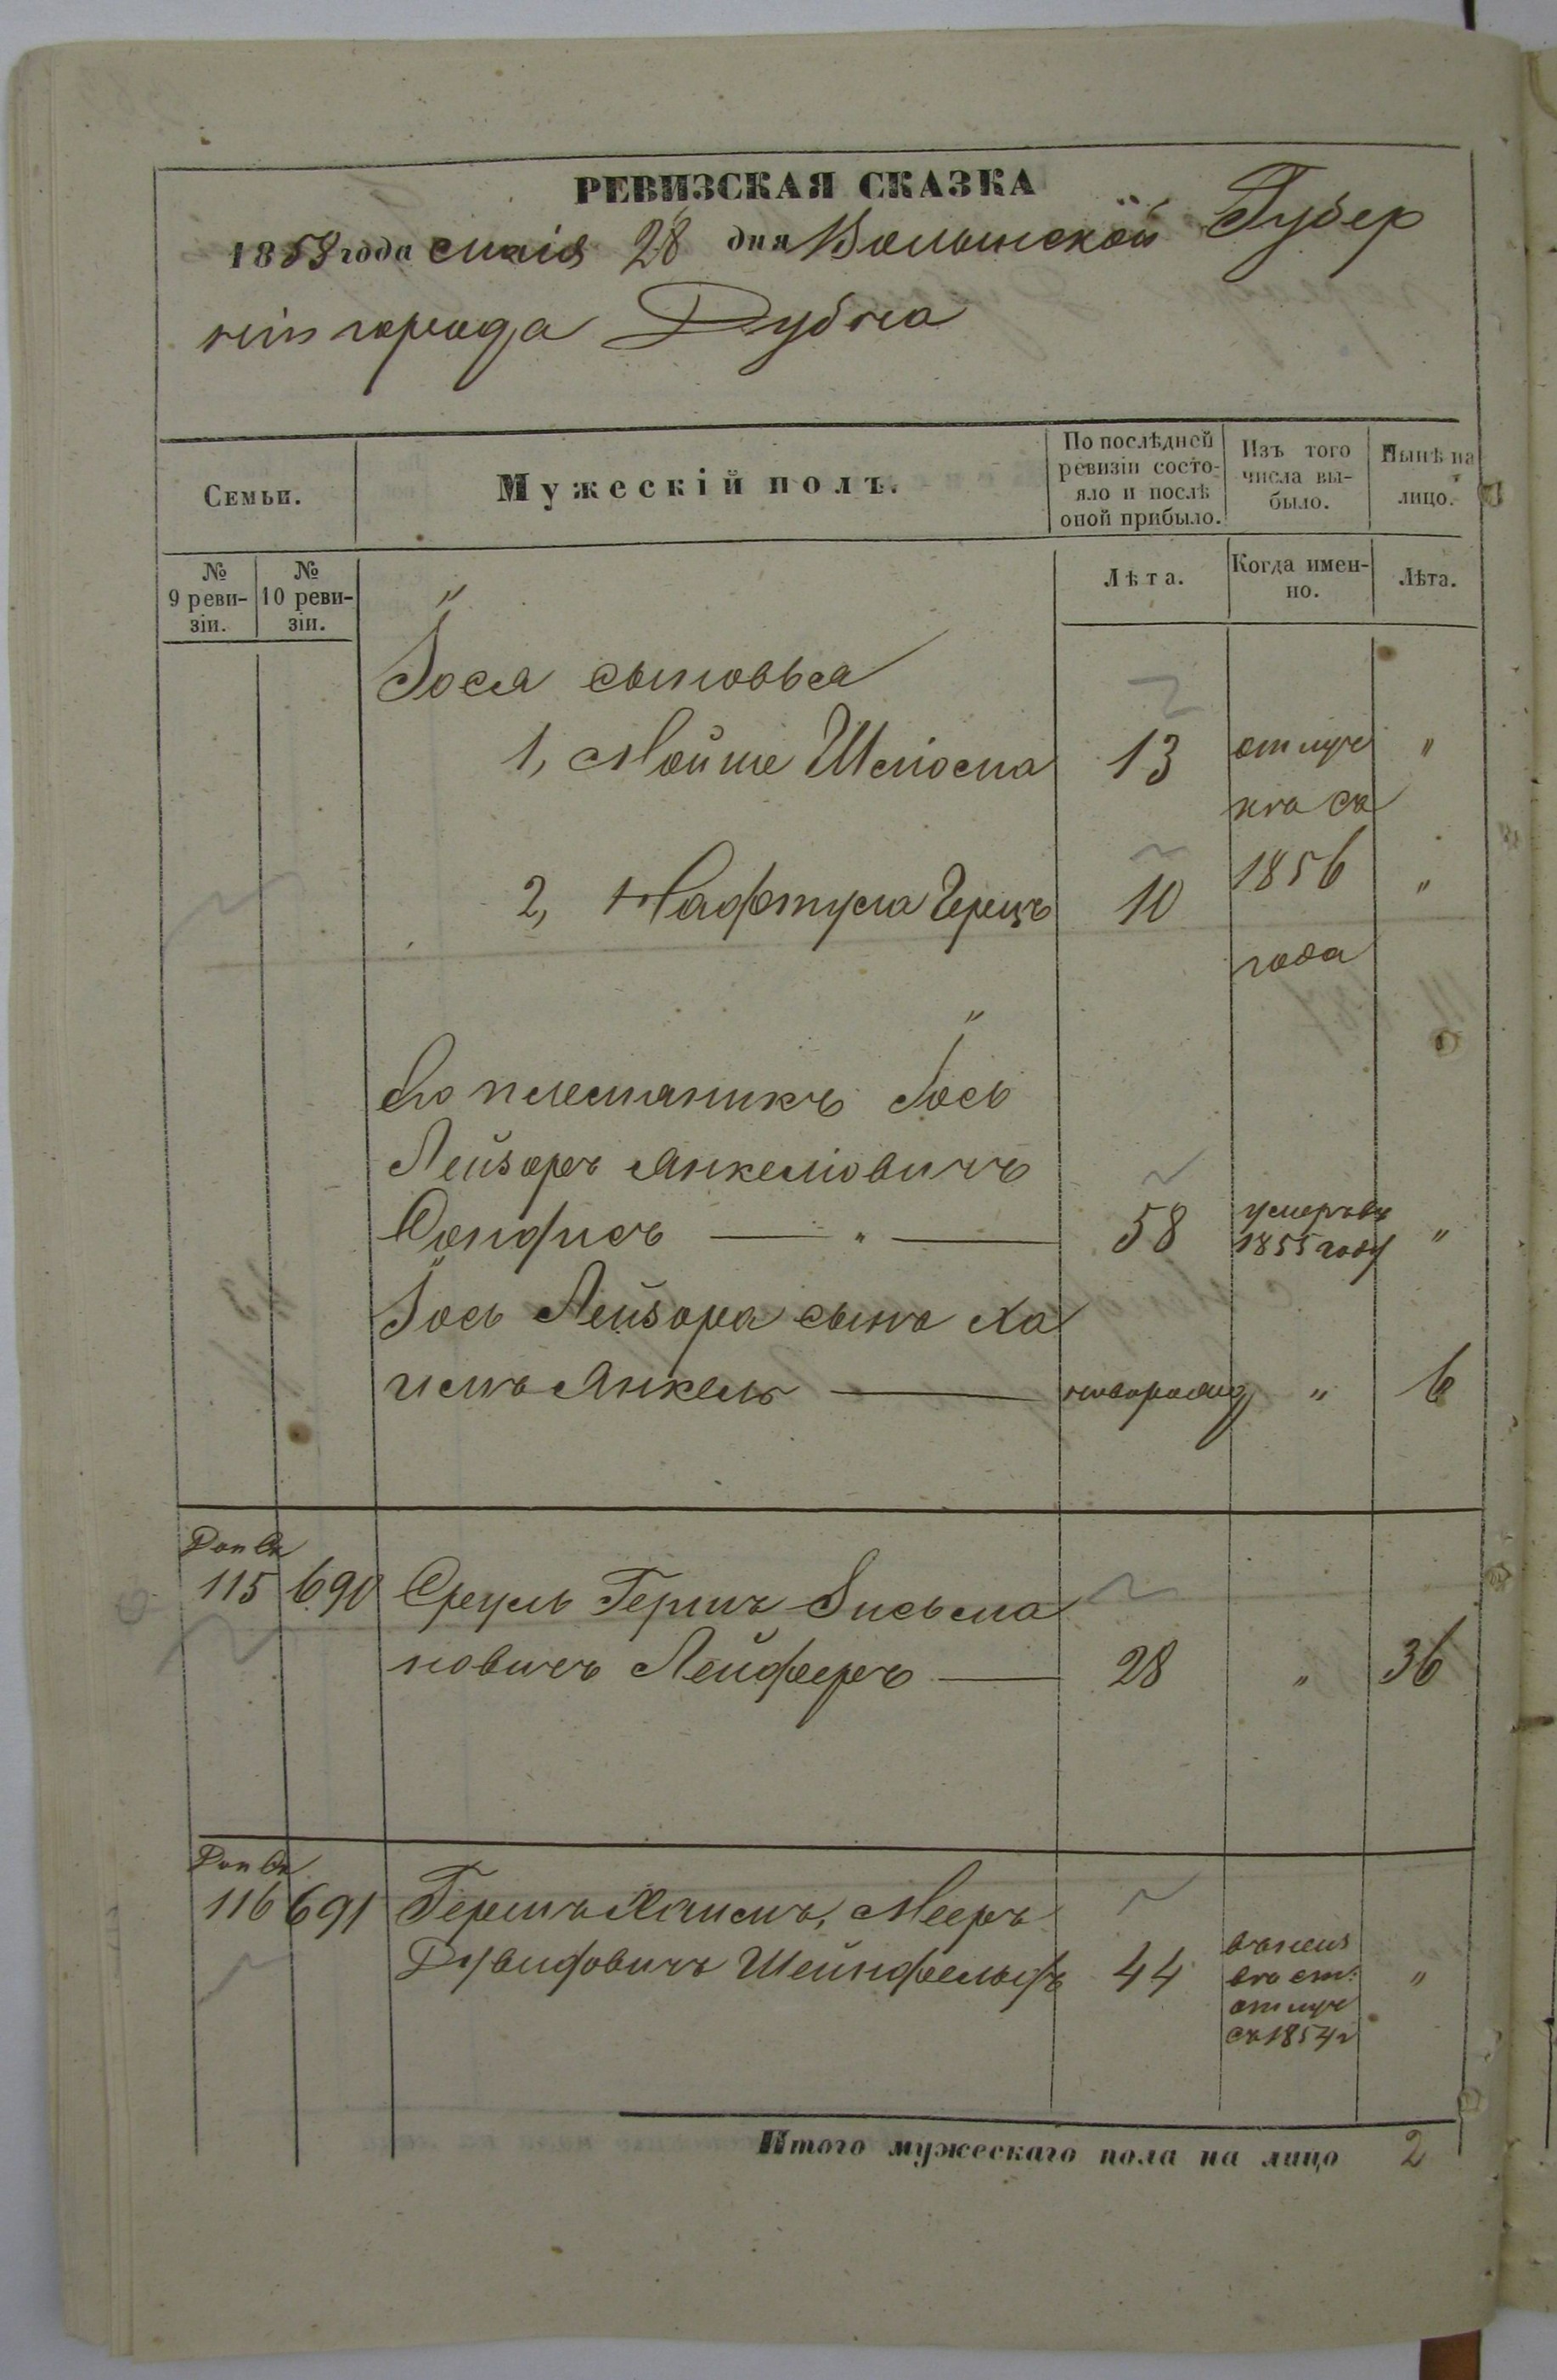 РЕВИЗСКАЯ СКАЗКА
1858 года маія 28 дня Волынской Губер
ніи города Дубна
Семьи.
Мужескій полъ.
По послѣдней ревизіи состо-
яло и послѣ
оной прибыло.
Изъ того
числа вы-
было.
Нынѣ на
лицо.
№
9 реви-
зіи.
№
10 реви-
зіи.
Лѣта.
Когда имен-
но.
Лѣта.
Іося сыновья
1, Мойше Шліома 13 отлуч "
ка съ
2, Нафтула Герцъ 10 1856 "
года
Его племяникъ Іось
Лейзоръ Янкеліовичъ
58 умеръ въ
1855 году "
Іось Лейзора сынъ Ха
имъ Янкель новорожд " 6
Доп Ск
115 690 Сруль Гершъ Зисьма
новичъ Лейферъ 28 " 36
Доп Ск
116 691 Гершъ Хаимъ, Мееръ
Дувидовичъ Шейнфельдъ 44
отлуч "
съ 1854 г
Итого мужескаго пола на лицо 2